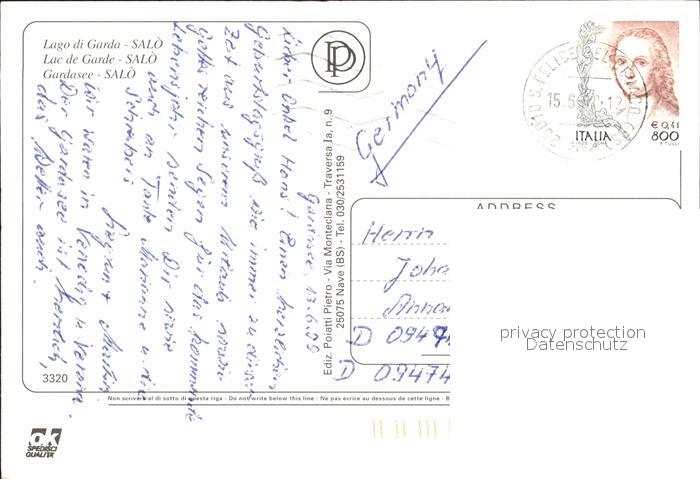 Lago di Garda - SALÒ
Lac de Garde - SALÒ
Gardasee - SALÒ
Gardasee, 13.6.99
Lieber Onkel Hans! Einen herzlichen
Geburtstagsgruß wie immer zu dieser
Zeit aus unserem Urlaub sowie
Gottes reichen Segen für das kommende
Lebensjahr senden Dir sowie
auch an Tante Marianne u. die
Schreibers
Wir waren in Venedig u. Verona.
Der Gardasee ist herrlich,
das Wetter auch.
3320
PDP
Ediz. Poiatti Pietro - Via Monteclana - Traversa Ia, n. 9
25075 Nave (BS) - Tel. 030/2531159
Germany
ITALIA
€ 0,41
800
ADDRESS
Herrn
Joha
D 0947
D 09474
Non scrivere al di sotto di questa riga - Do not write below this line - Ne pas ecrire au dessous de cette ligne - B
ok
SPEDISCI
QUALITÀ
privacy protection
Datenschutz